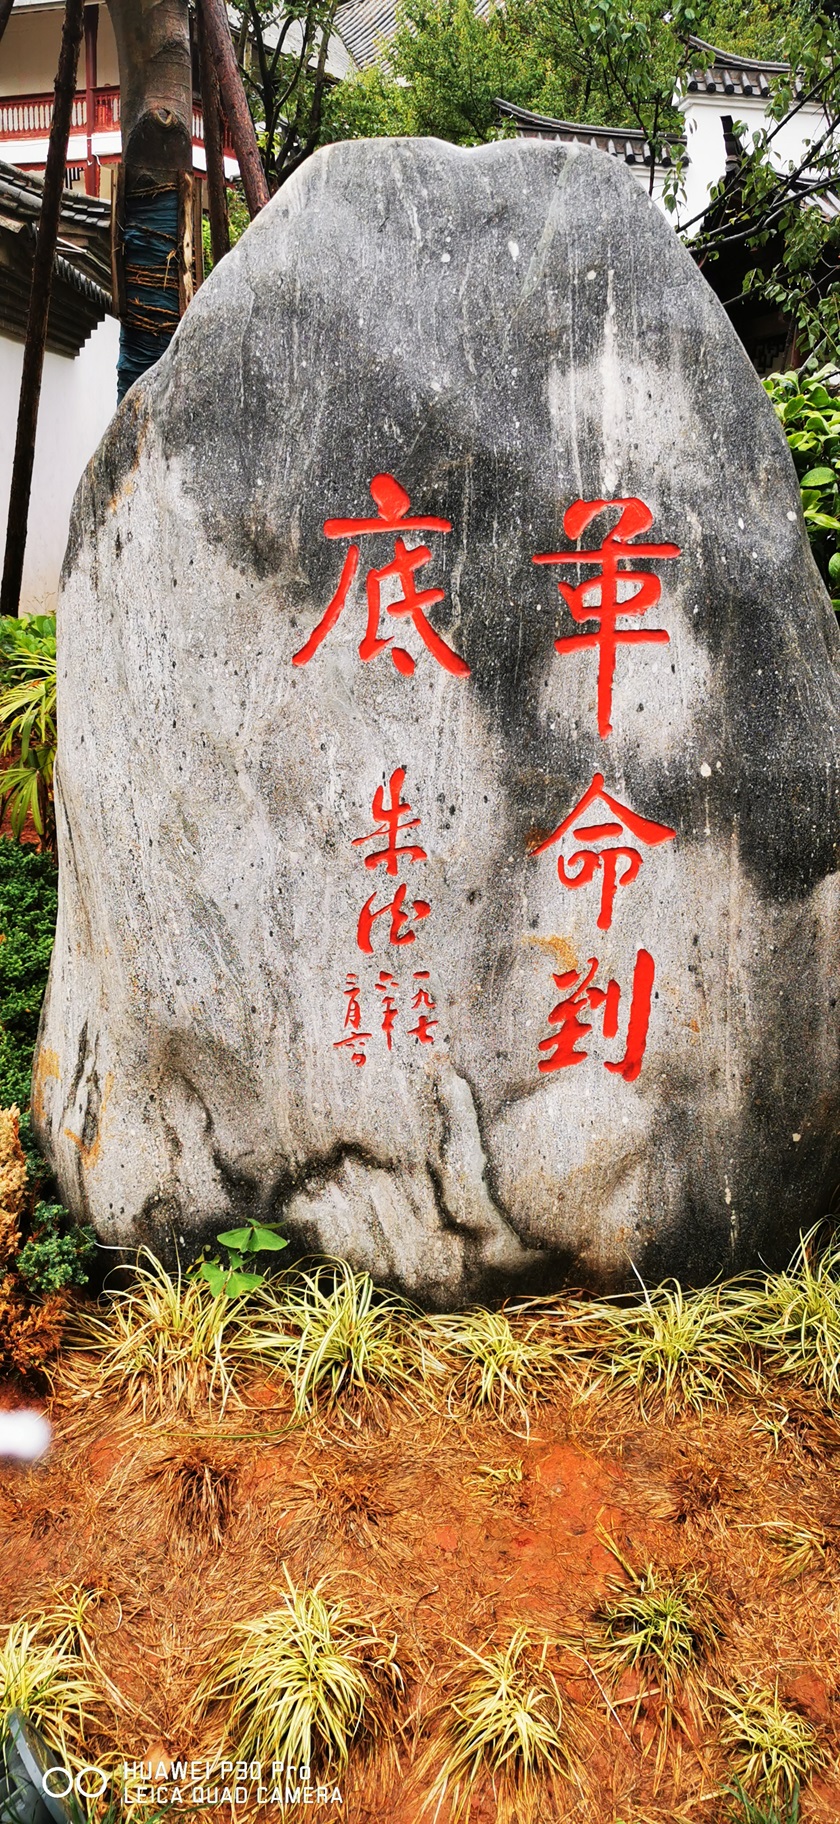 革命到
底
朱德
一九七
六年
三月六日
HUAWEI P30 Pro
LEICA QUAD CAMERA